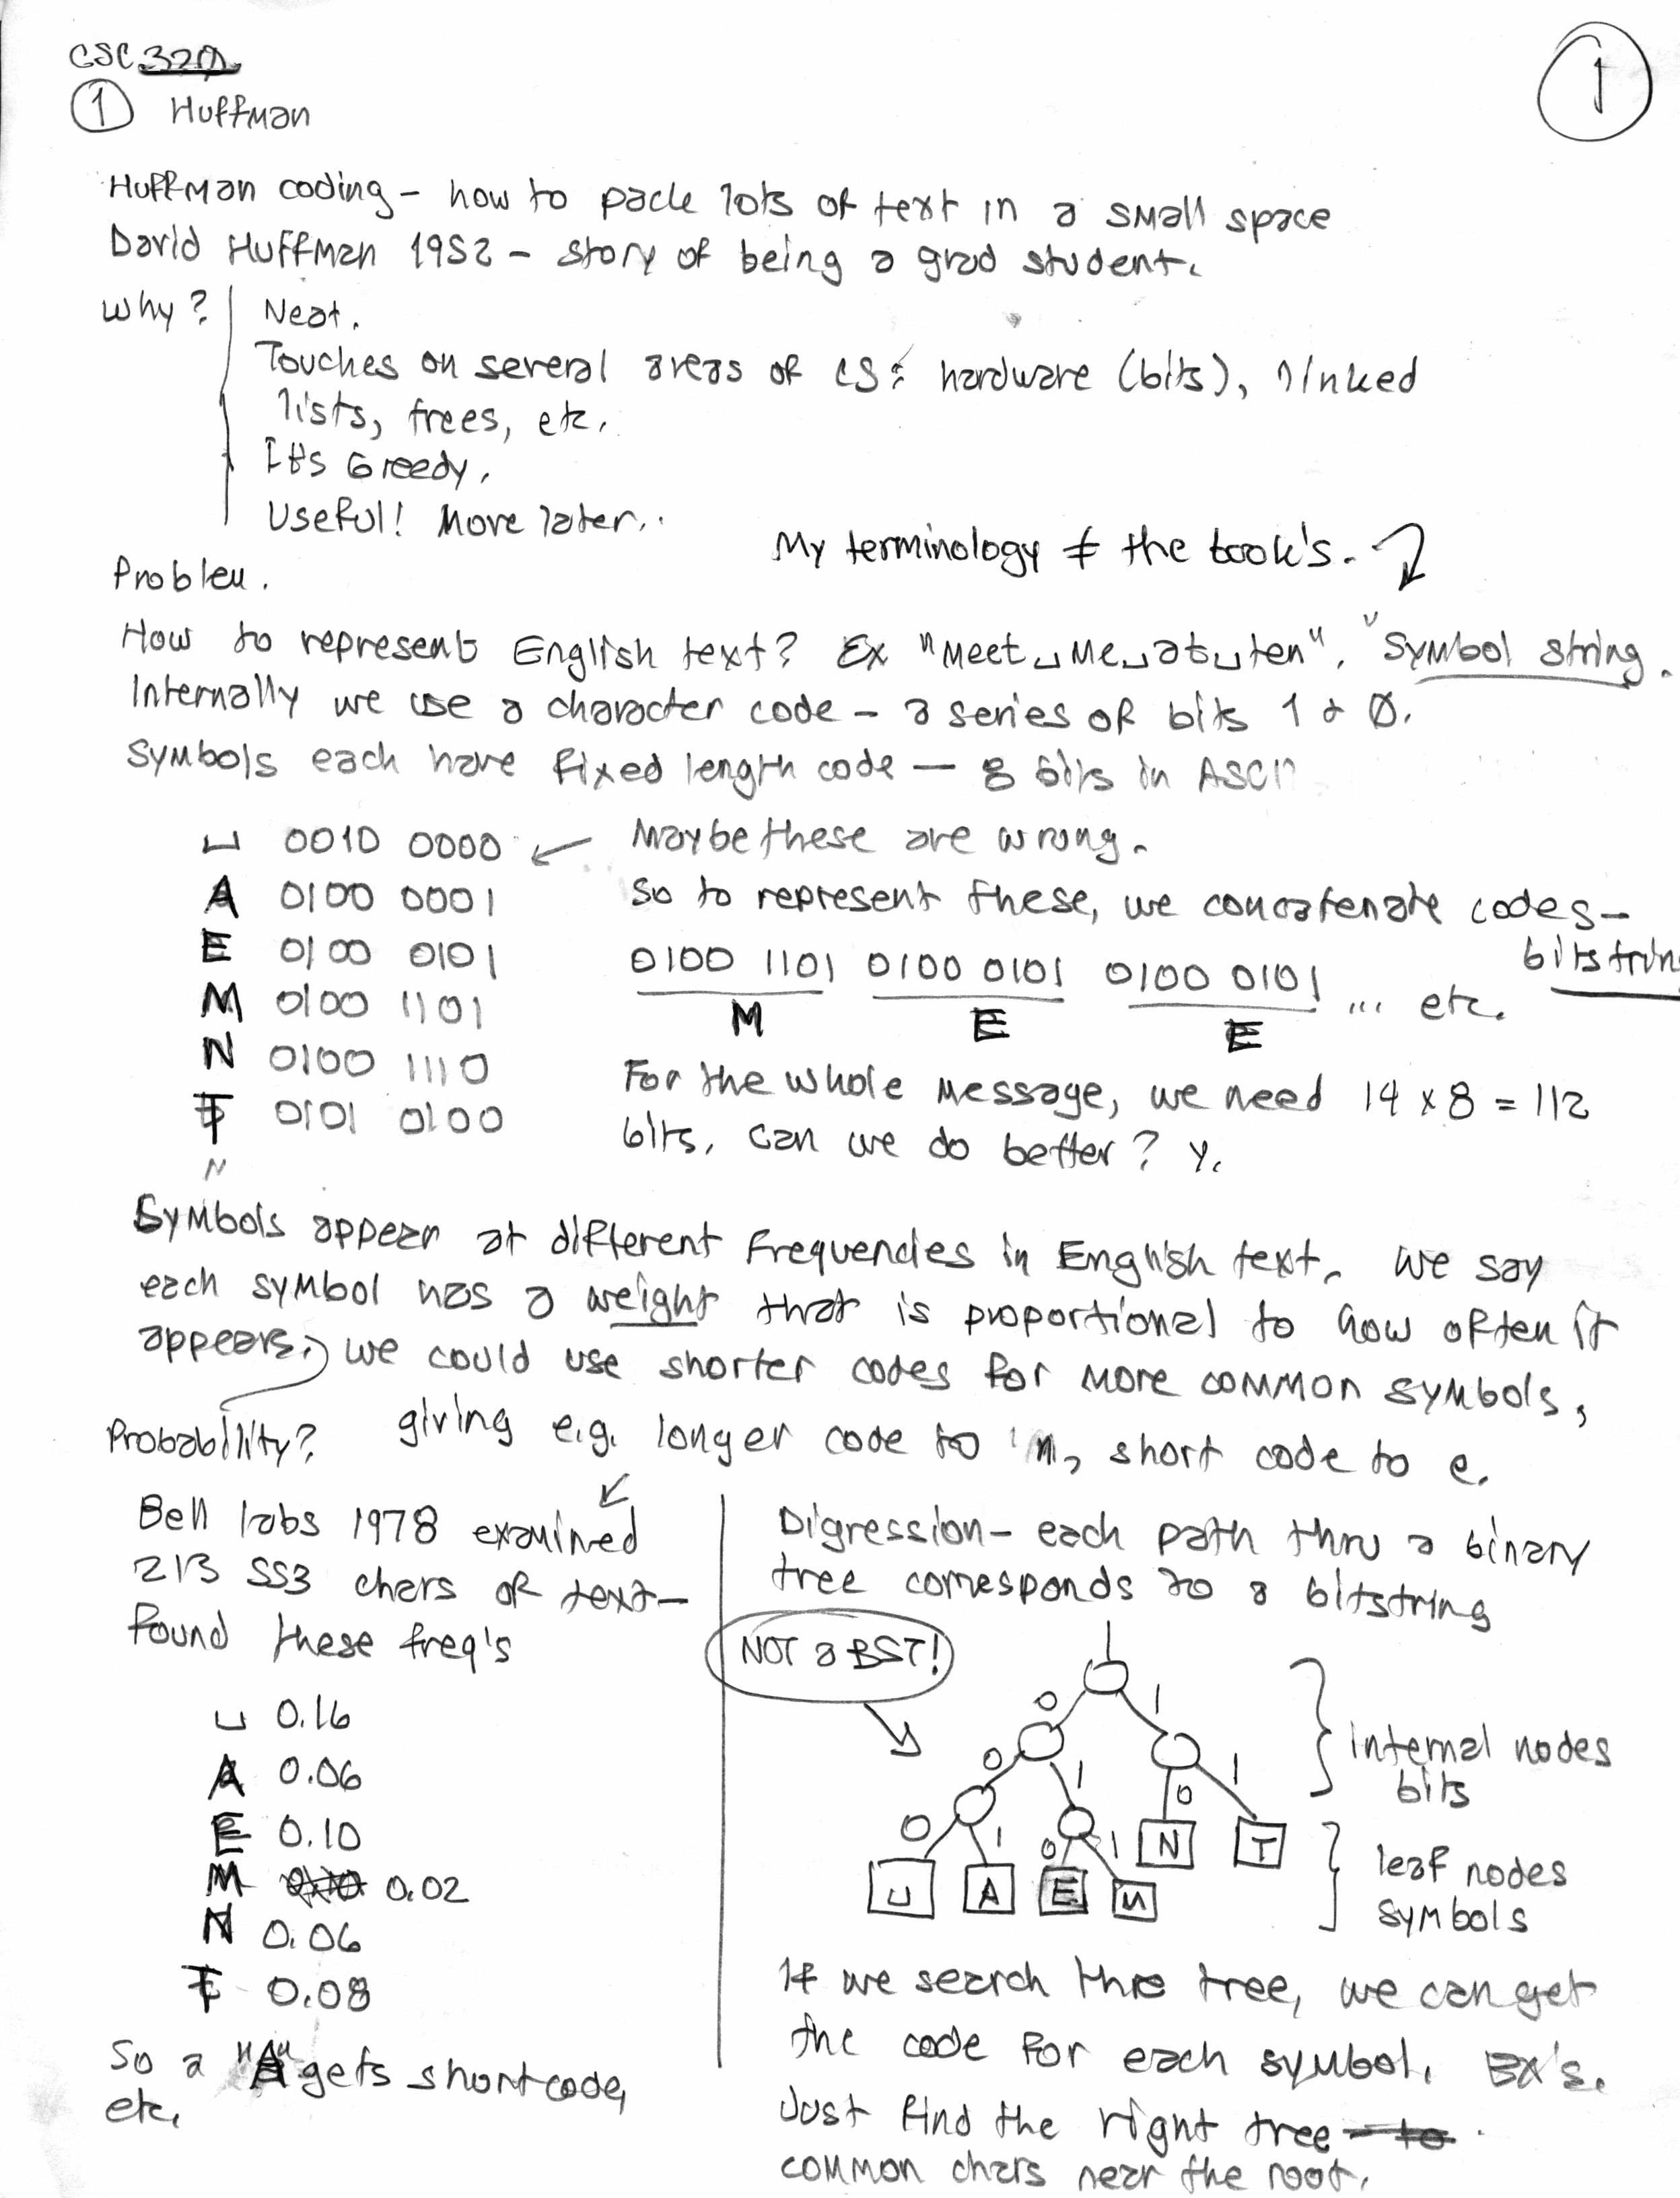 CSC 320
① Huffman
①
Huffman coding – how to pack lots of text in a small space
David Huffman 1952 – story of being a grad student.
Why?
Neat.
Touches on several areas of CS: hardware (bits), linked
lists, trees, etc.
It's Greedy.
Useful! More later..
My terminology ≠ the book's.
Problem.
How to represent English text? Ex "Meet␣Me␣at␣ten". "Symbol string.
Internally we use a character code – a series of bits 1 & 0.
Symbols each have fixed length code — 8 bits in ASCII
␣ 0010 0000 ← Maybe these are wrong.
A 0100 0001
E 0100 0101
M 0100 1101
N 0100 1110
T 0101 0100
N
So to represent these, we concatenate codes–
bitstring
0100 1101 0100 0101 0100 0101 ... etc.
M E E
For the whole message, we need 14 × 8 = 112
bits. Can we do better? Y.
Symbols appear at different frequencies in English text. We say
each symbol has a weight that is proportional to how often it
appears. We could use shorter codes for more common symbols,
Probability?
giving e.g. longer code to m, short code to e.
Bell labs 1978 examined
213 553 chars of text–
found these freq's
␣ 0.16
A 0.06
E 0.10
M 0.02
N 0.06
T 0.08
So a "A" gets short code,
etc.
Digression – each path thru a binary
tree corresponds to a bitstring
NOT a BST!
0 1
0 1 0 1
0 1 0 1 N T
␣ A E M
internal nodes
bits
leaf nodes
symbols
If we search this tree, we can get
the code for each symbol. EX's.
Just find the right tree – to
common chars near the root.